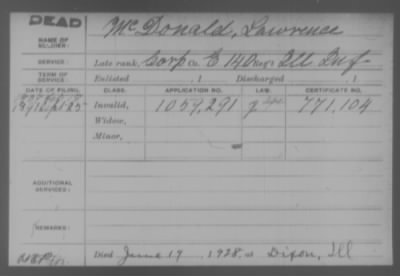 DEAD
NAME OF SOLDIER: McDonald, Lawrence
SERVICE: Late rank, Corp Co. E 140 Reg't Ill Inf
TERM OF SERVICE: Enlisted , 1 Discharged , 1
DATE OF FILING. CLASS. APPLICATION NO. LAW. CERTIFICATE NO.
1891 Sept 25 Invalid, 1059,291 771,104
Widow,
Minor,
ADDITIONAL SERVICES:
REMARKS:
Died June 19, 1928, at Dixon, Ill